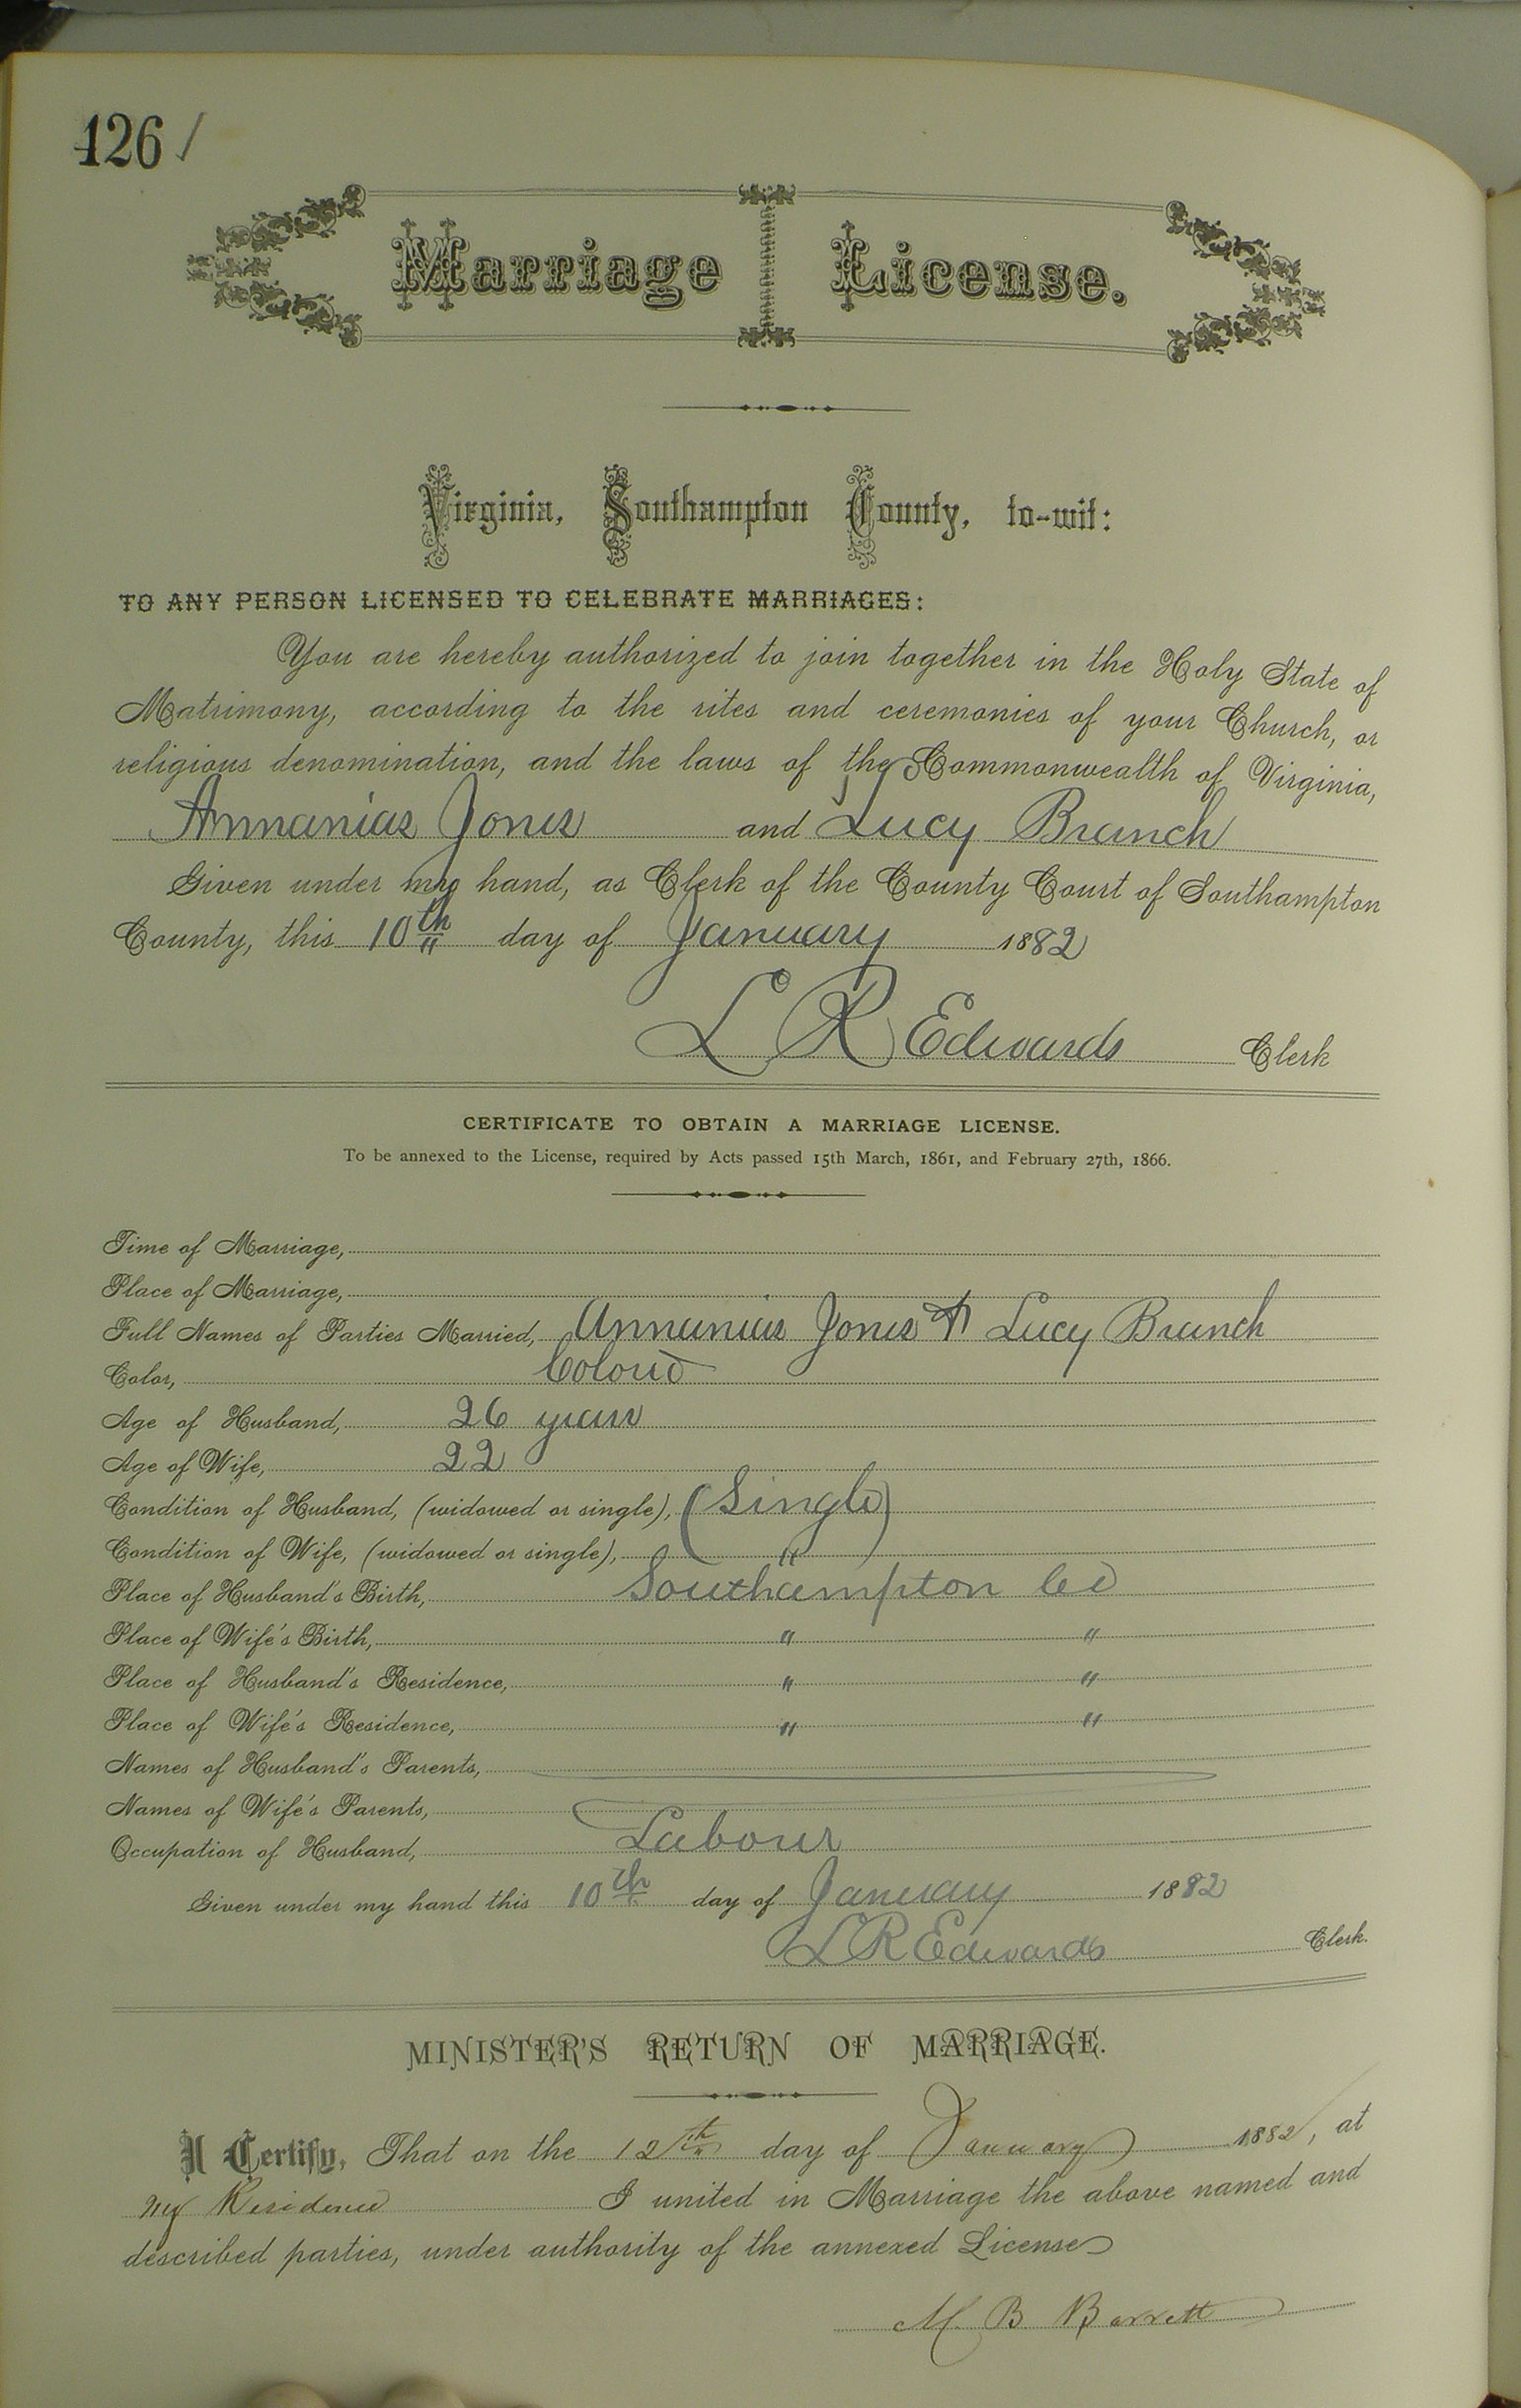 126 /
Marriage License.
Virginia, Southampton County, to-wit:
TO ANY PERSON LICENSED TO CELEBRATE MARRIAGES:
You are hereby authorized to join together in the Holy State of
Matrimony, according to the rites and ceremonies of your Church, or
religious denomination, and the laws of the Commonwealth of Virginia,
Annanias Jones and Lucy Branch
Given under my hand, as Clerk of the County Court of Southampton
County, this 10th day of January 1882
L R Edwards Clerk
CERTIFICATE TO OBTAIN A MARRIAGE LICENSE.
To be annexed to the License, required by Acts passed 15th March, 1861, and February 27th, 1866.
Time of Marriage,
Place of Marriage,
Full Names of Parties Married, Annanias Jones & Lucy Branch
Color, Colored
Age of Husband, 26 years
Age of Wife, 22
Condition of Husband, (widowed or single), (Single)
Condition of Wife, (widowed or single), "
Place of Husband's Birth, Southampton Co
Place of Wife's Birth, " "
Place of Husband's Residence, " "
Place of Wife's Residence, " "
Names of Husband's Parents,
Names of Wife's Parents,
Occupation of Husband, Labourer
Given under my hand this 10th day of January 1882
L R Edwards Clerk.
MINISTER'S RETURN OF MARRIAGE.
I Certify, That on the 12th day of January 1882, at
my Residence I united in Marriage the above named and
described parties, under authority of the annexed License
M. B Barrett